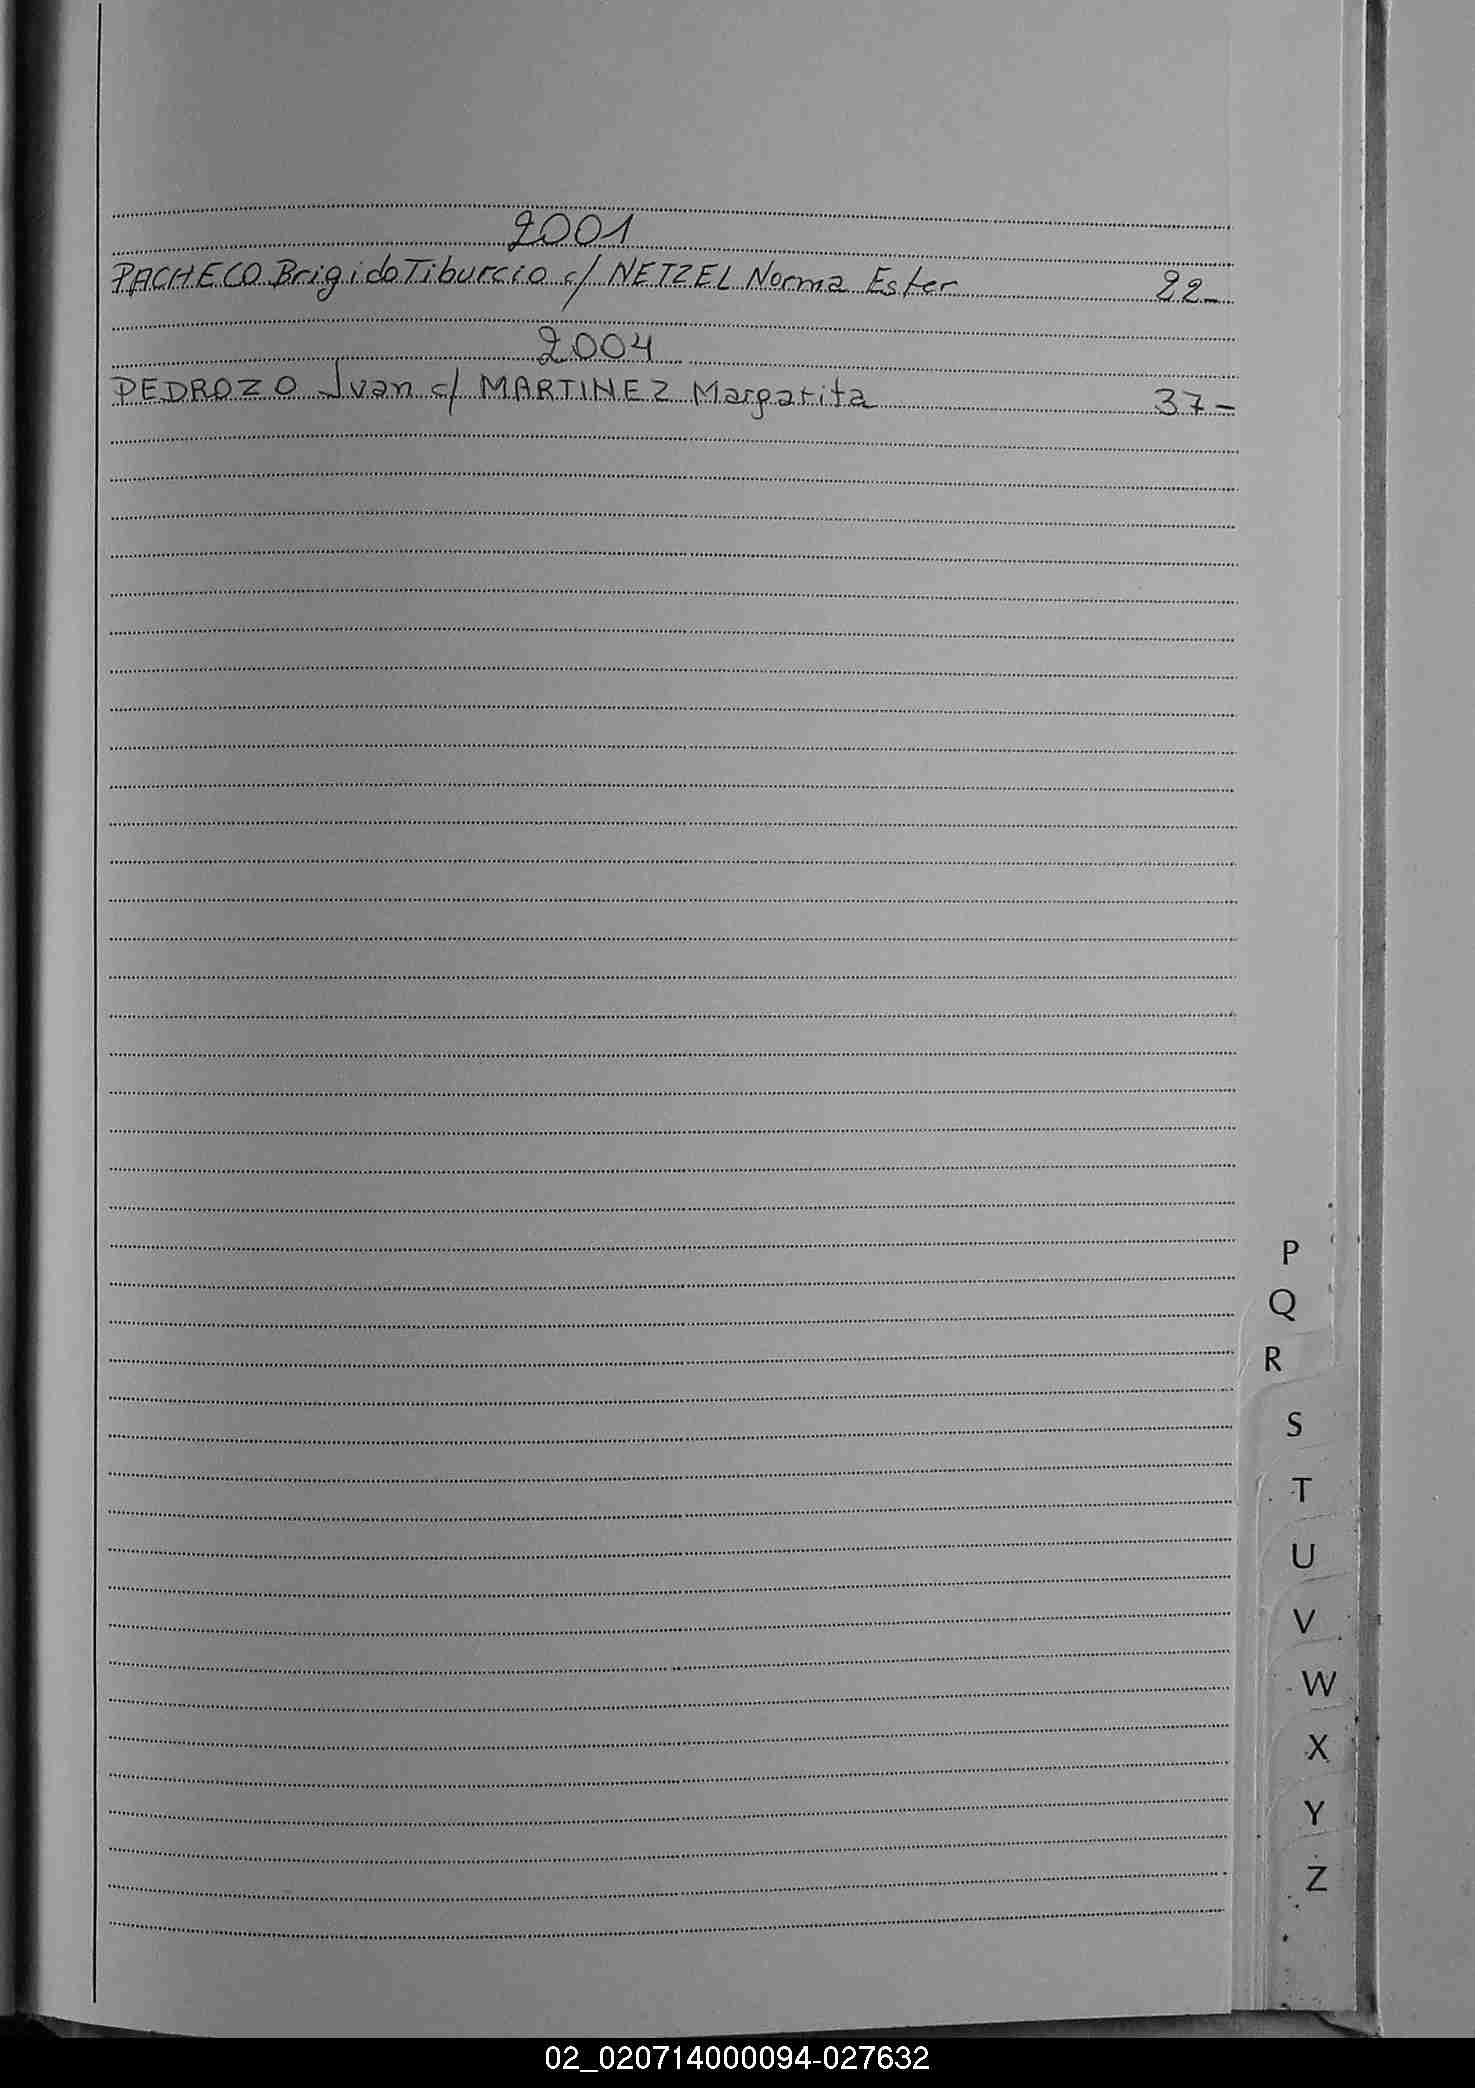 2001
PACHECO Brigido Tiburcio c/ NETZEL Norma Ester 22-
2004
PEDROZO Juan c/ MARTINEZ Margarita 37-
P
Q
R
S
T
U
V
W
X
Y
Z
02_020714000094-027632